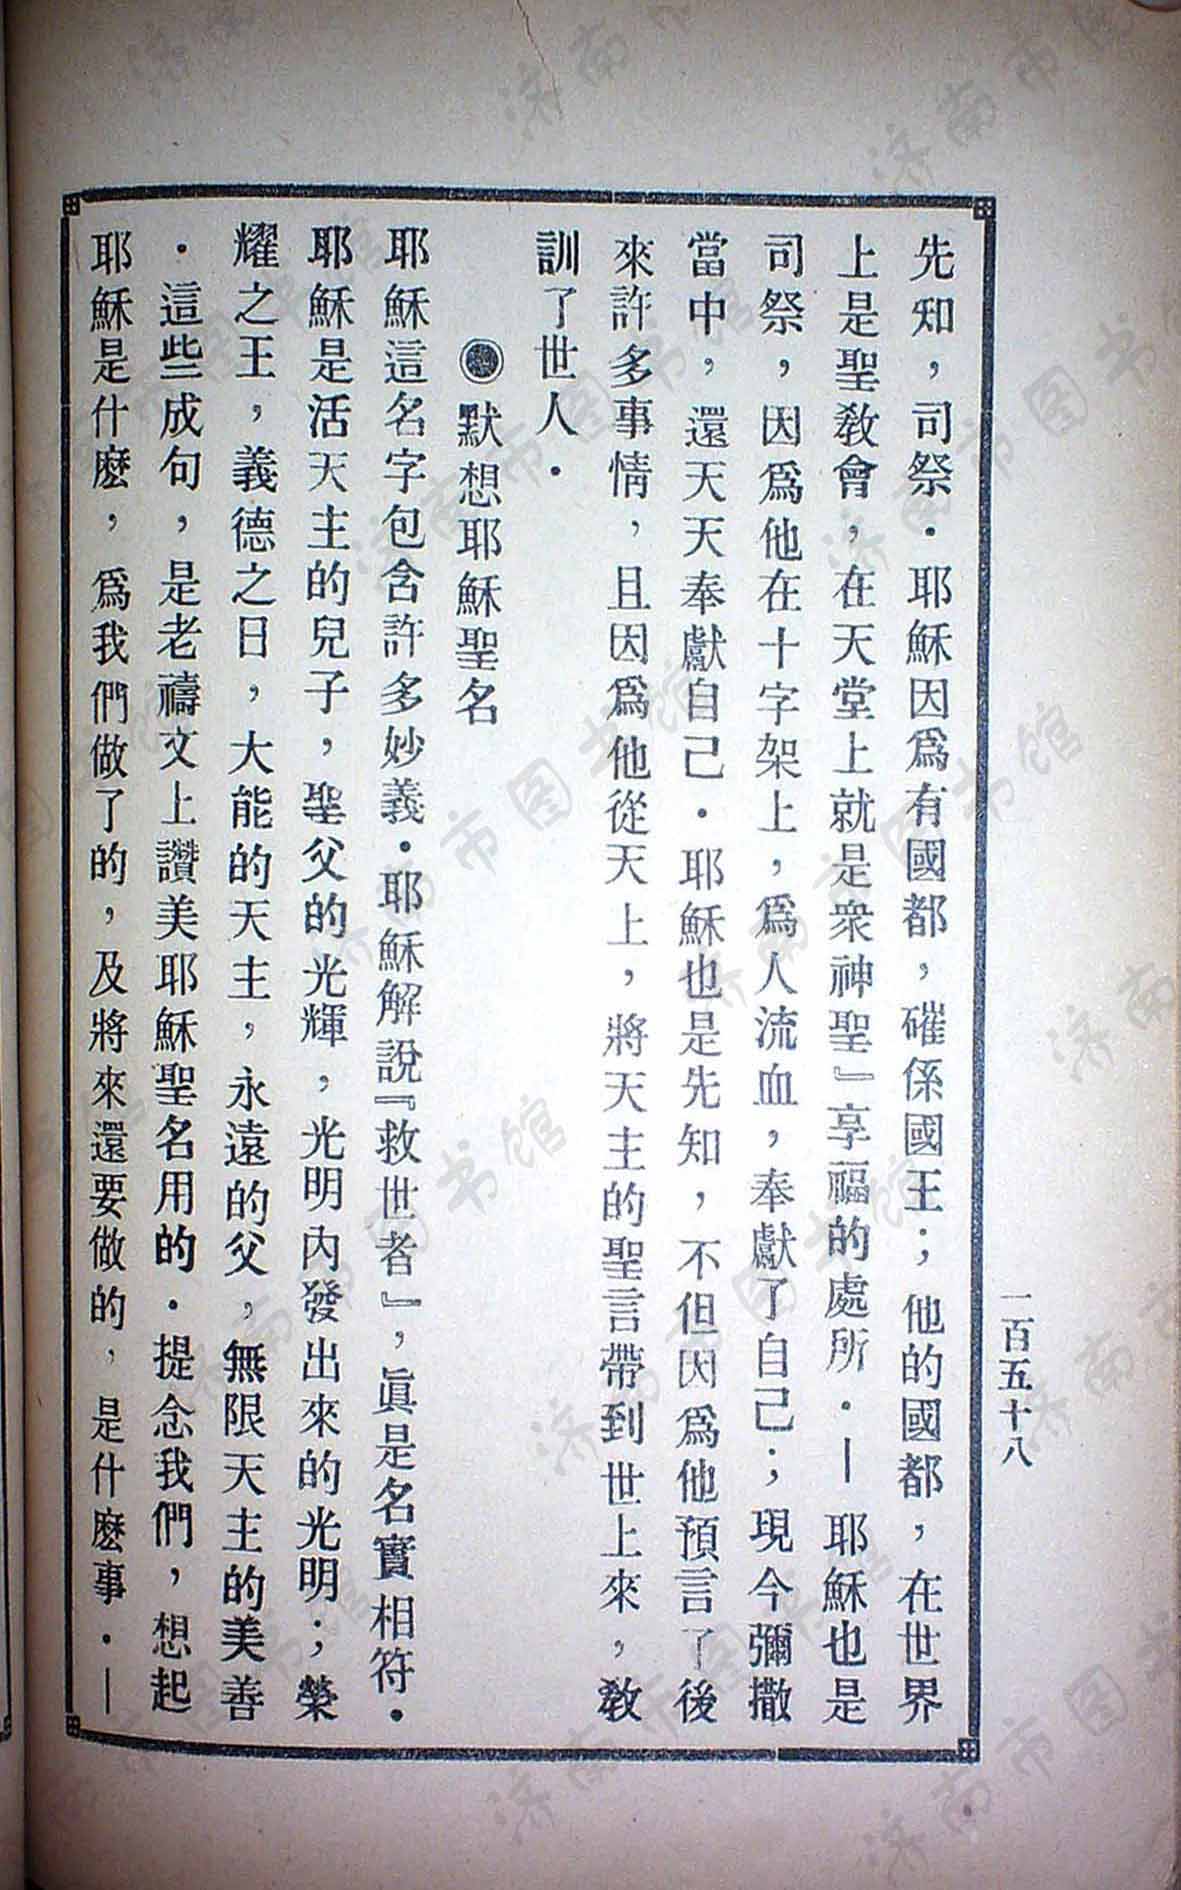 一百五十八
先知，司祭．耶穌因爲有國都，確係國王；他的國都，在世界
上是聖敎會，在天堂上就是衆神聖』享福的處所．—耶穌也是
司祭，因爲他在十字架上，爲人流血，奉獻了自己；現今彌撒
當中，還天天奉獻自己．耶穌也是先知，不但因爲他預言了後
來許多事情，且因爲他從天上，將天主的聖言帶到世上來，敎
訓了世人．
◉默想耶穌聖名
耶穌這名字包含許多妙義．耶穌解說『救世者』，眞是名實相符．
耶穌是活天主的兒子，聖父的光輝，光明內發出來的光明；榮
耀之王，義德之日，大能的天主，永遠的父，無限天主的美善
．這些成句，是老禱文上讚美耶穌聖名用的．提念我們，想起
耶穌是什麽，爲我們做了的，及將來還要做的，是什麽事．—
济南市图书馆